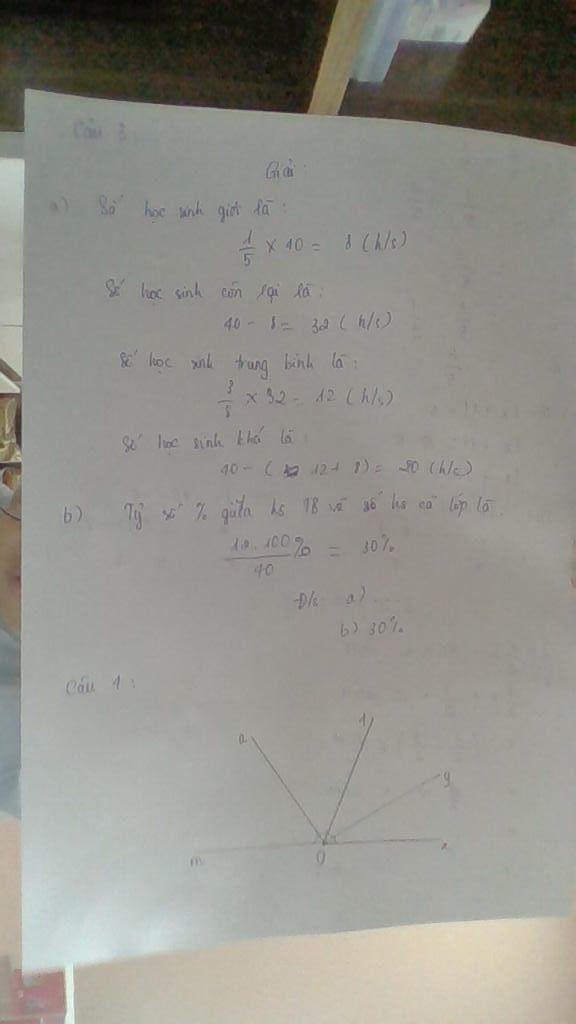 Câu 3
Giải:
a) Số học sinh giỏi là:
1/5 × 40 = 8 (h/s)
Số học sinh còn lại là:
40 - 8 = 32 (h/s)
Số học sinh trung bình là:
3/8 × 32 = 12 (h/s)
Số học sinh khá là:
40 - ( 12 + 8) = 20 (h/s)
b) Tỷ số % giữa hs TB và số hs cả lớp là
12 . 100 / 40 % = 30%
Đ/s: a) ....
b) 30%
Câu 4:
a
y
m
O